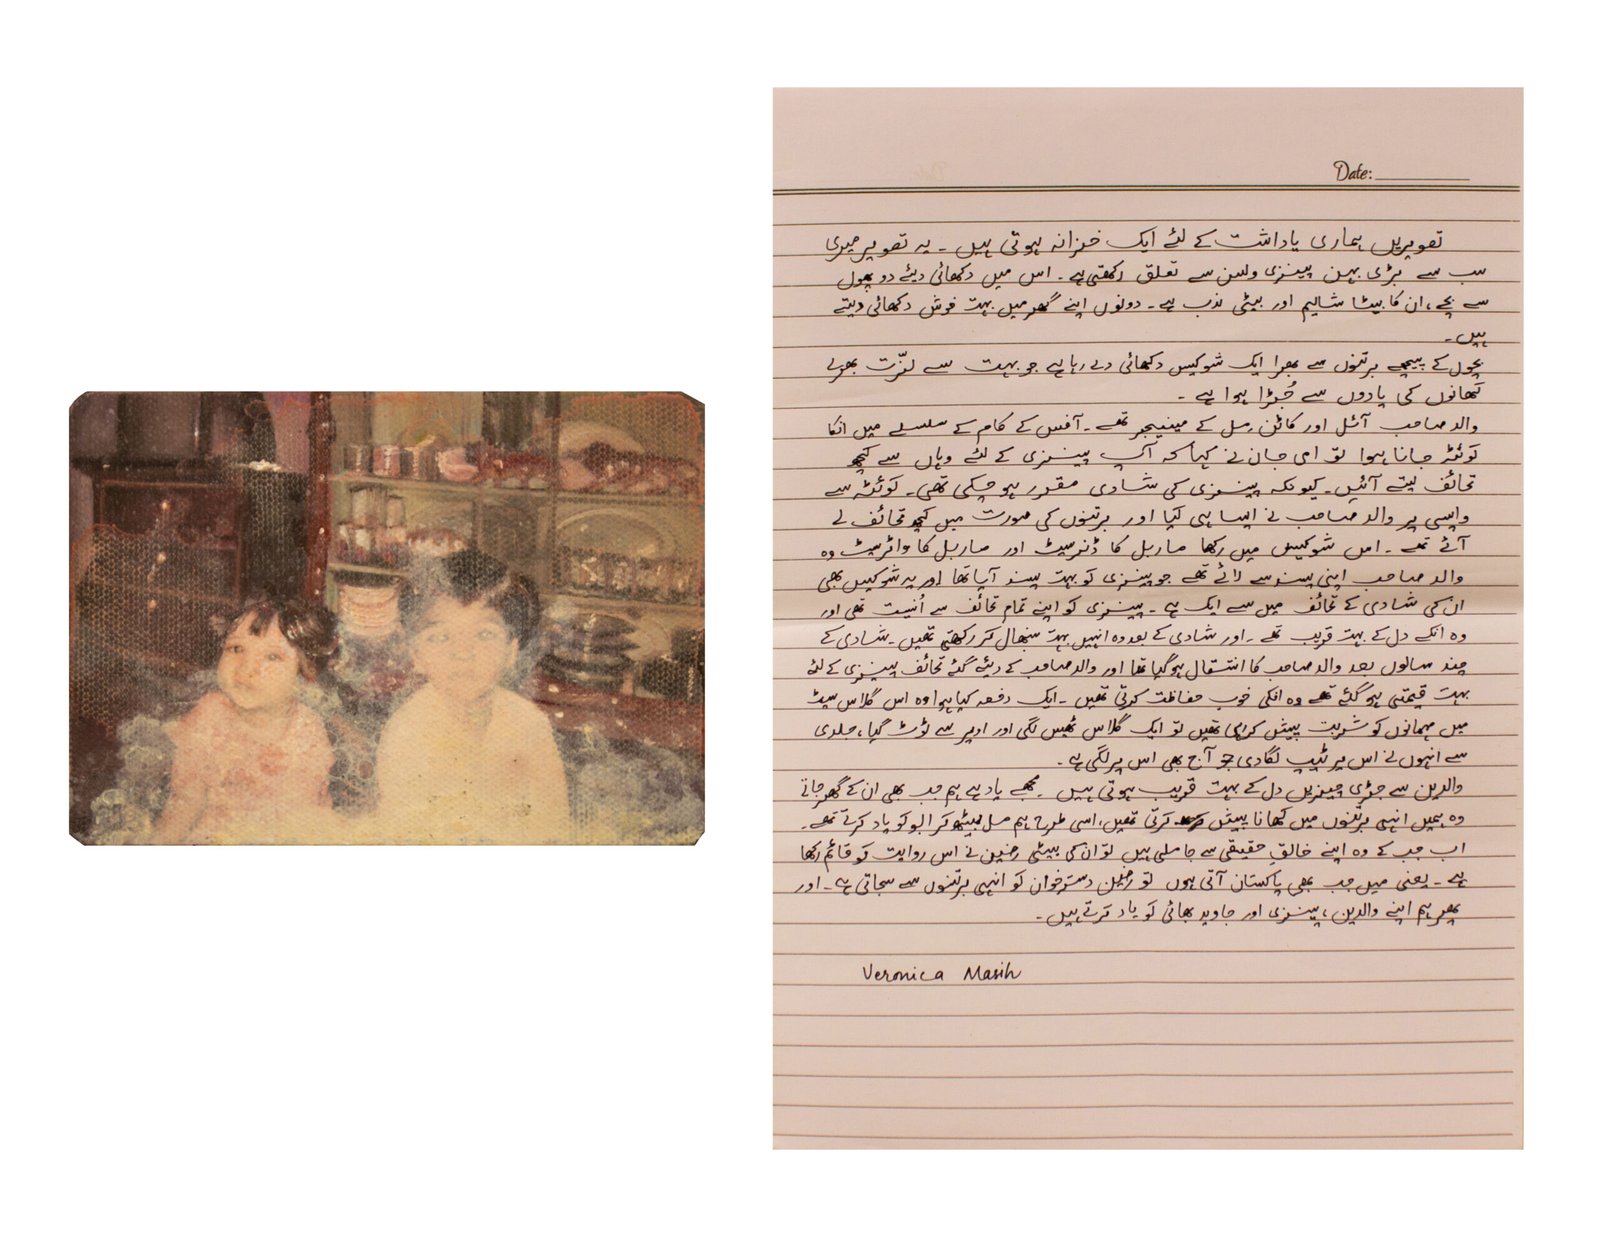 Date:
تصویریں ہماری یاداشت کے لئے ایک خزانہ ہوتی ہیں ۔ یہ تصویر میری
سب سے بڑی بہن پینزی ولسن سے تعلق رکھتی ہے ۔ اس میں دکھائی دیئے دو پھول
سے بچے ، ان کا بیٹا شالیم اور بیٹی ہے ۔ دونوں اپنے گھر میں بہت خوش دکھائی دیتے
ہیں ۔
بچوں کے پیچھے برتنوں سے بھرا ایک شوکیس دکھائی دے رہا ہے جو بہت سے لذّت بھرے
کھانوں کی یادوں سے جُڑا ہوا ہے ۔
والد صاحب آئل اور کاٹن مل کے مینیجر تھے ۔ آفس کے کام کے سلسلے میں انکا
کوئٹہ جانا ہوا تو امی جان نے کہا کہ آپ پینزی کے لئے وہاں سے کچھ
تحائف لیتے آئیں ۔ کیونکہ پینزی کی شادی مقرر ہو چکی تھی ۔ کوئٹہ سے
واپسی پر والد صاحب نے ایسا ہی کیا اور برتنوں کی صورت میں کچھ تحائف لے
آئے تھے ۔ اس شوکیس میں رکھا ماربل کا ڈنر سیٹ اور ماربل کا واٹر سیٹ وہ
والد صاحب اپنی پسند سے لائے تھے جو پینزی کو بہت پسند آیا تھا اور یہ شوکیس بھی
ان کی شادی کے تحائف میں سے ایک ہے ۔ پینزی کو اپنے تمام تحائف سے اُنسیت تھی اور
وہ انکے دل کے بہت قریب تھے ۔ اور شادی کے بعد وہ انہیں بہت سنبھال کر رکھتی تھیں ۔ شادی کے
چند سالوں بعد والد صاحب کا انتقال ہو گیا تھا اور والد صاحب کے دیئے گئے تحائف پینزی کے لئے
بہت قیمتی ہو گئے تھے وہ انکی خوب حفاظت کرتی تھیں ۔ ایک دفعہ کیا ہوا وہ اس گلاس سیٹ
میں مہمانوں کو شربت پیش کر رہی تھیں تو ایک گلاس ٹھیس لگی اور اوپر سے ٹوٹ گیا ، جلدی
سے انہوں نے اس پر ٹیپ لگا دی جو آج بھی اس پر لگی ہے ۔
والدین سے جڑی چیزیں دل کے بہت قریب ہوتی ہیں ۔ مجھے یاد ہے ہم جب بھی ان کے گھر جاتے
وہ ہمیں انہی برتنوں میں کھانا پیش کرتی تھیں ، اسی طرح ہم مل بیٹھ کر ابو کو یاد کرتے تھے ۔
اب جب کے وہ اپنے خالقِ حقیقی سے جا ملی ہیں تو ان کی بیٹی نے اس روایت کو قائم رکھا
ہے ۔ یعنی میں جب بھی پاکستان آتی ہوں تو دسترخوان کو انہی برتنوں سے سجاتی ہے ۔ اور
پھر ہم اپنے والدین ، پینزی اور جاوید بھائی کو یاد کرتے ہیں ۔
Veronica Masih